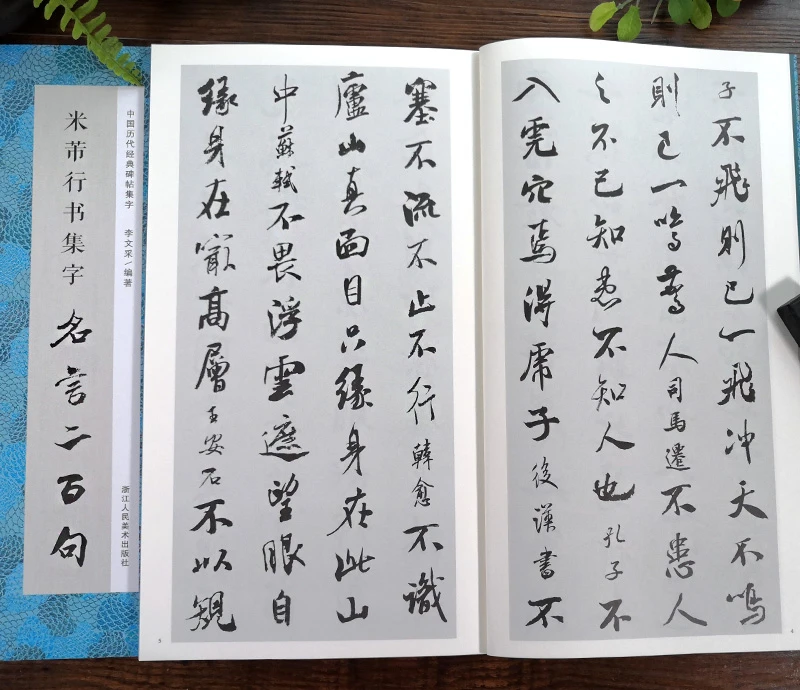 子不飛則已一飛冲天不鳴
則已一鳴驚人司馬遷不患人
之不己知患不知人也孔子不
入虎穴焉得虎子後漢書不
4
塞不流不止不行韓愈不識
廬山真面目只緣身在此山
中蘇軾不畏浮雲遮望眼自
緣身在最高層王安石不以規
5
中国历代经典碑帖集字 李文采/编著 浙江人民美术出版社
米芾行书集字 名言二百句